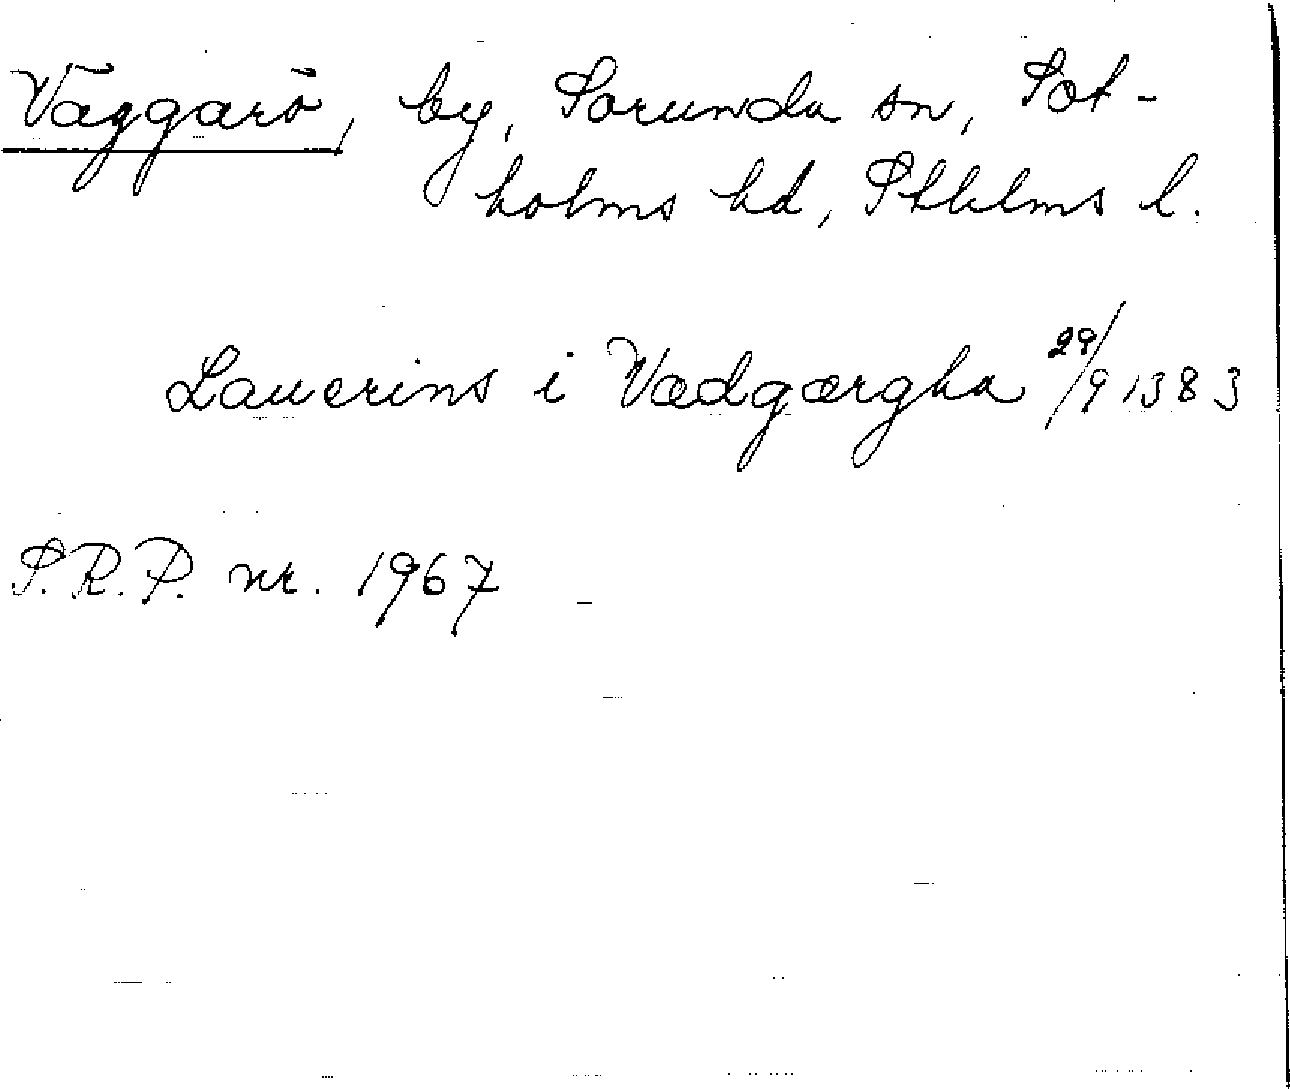 Väggarö, by, Sorunda sn, Sot-
holms hd, Sthlms l.
Laurins i Vædgærgha 29/9 1383
S.R.P. nr. 1967